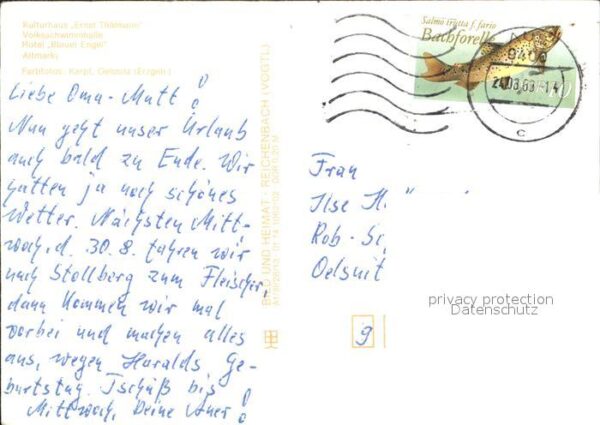 Kulturhaus „Ernst Thälmann“
Volksschwimmhalle
Hotel „Blauer Engel“
Altmarkt
Farbfotos: Karpf, Gelenau (Erzgeb.)
Liebe Oma-Mutti!
Nun geht unser Urlaub
auch bald zu Ende. Wir
hatten ja noch schönes
Wetter. Nächsten Mitt-
woch, d. 30.8. fahren wir
nach Stollberg zum Fleischer,
dann kommen wir mal
vorbei und machen alles
aus, wegen Haralds Ge-
burtstag. Tschüß bis
Mittwoch, Deine
BILD UND HEIMAT REICHENBACH (VOGTL)
Salmo trutta f. fario
Bachforelle
10
Frau
Ilse H.
Rob-Sc
Oelsnit
9
privacy protection
Datenschutz